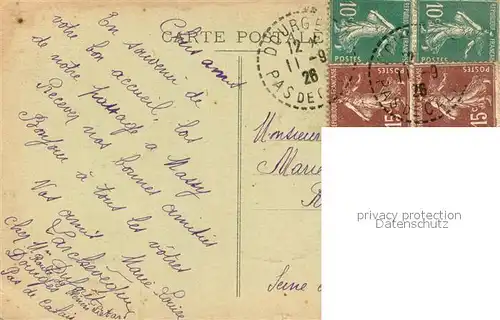 CARTE POSTALE
Chers amis
En souvenir de
votre bon accueil. lors
de notre passage a Massy
Recevez nos bonnes amitiés
Bonjour à tous les vôtres
Vos amis Marie Louise
chez Mme
Dourges
Pas de Calais
DOURGES
12 *
11 - 9
26
PAS DE C
10c
10c
15c
15c
26
Monsieur
Marie
R
Seine
privacy protection
Datenschutz